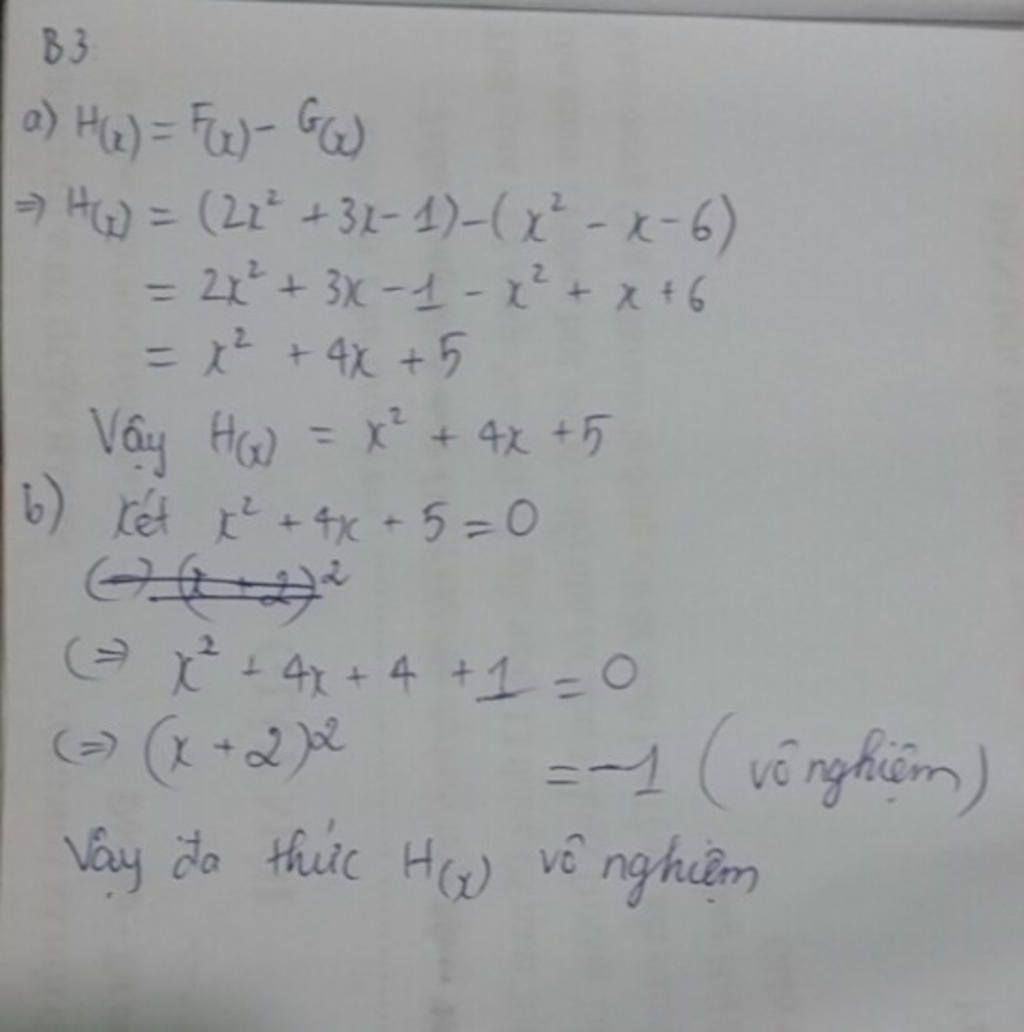 B3
a) H(x) = F(x) - G(x)
⇒ H(x) = (2x² + 3x - 1) - (x² - x - 6)
= 2x² + 3x - 1 - x² + x + 6
= x² + 4x + 5
Vậy H(x) = x² + 4x + 5
b) Xét x² + 4x + 5 = 0
(=) (x + 2)²
(⇒ x² + 4x + 4 + 1 = 0
(⇒) (x + 2)² = -1 (vô nghiệm)
Vậy đa thức H(x) vô nghiệm